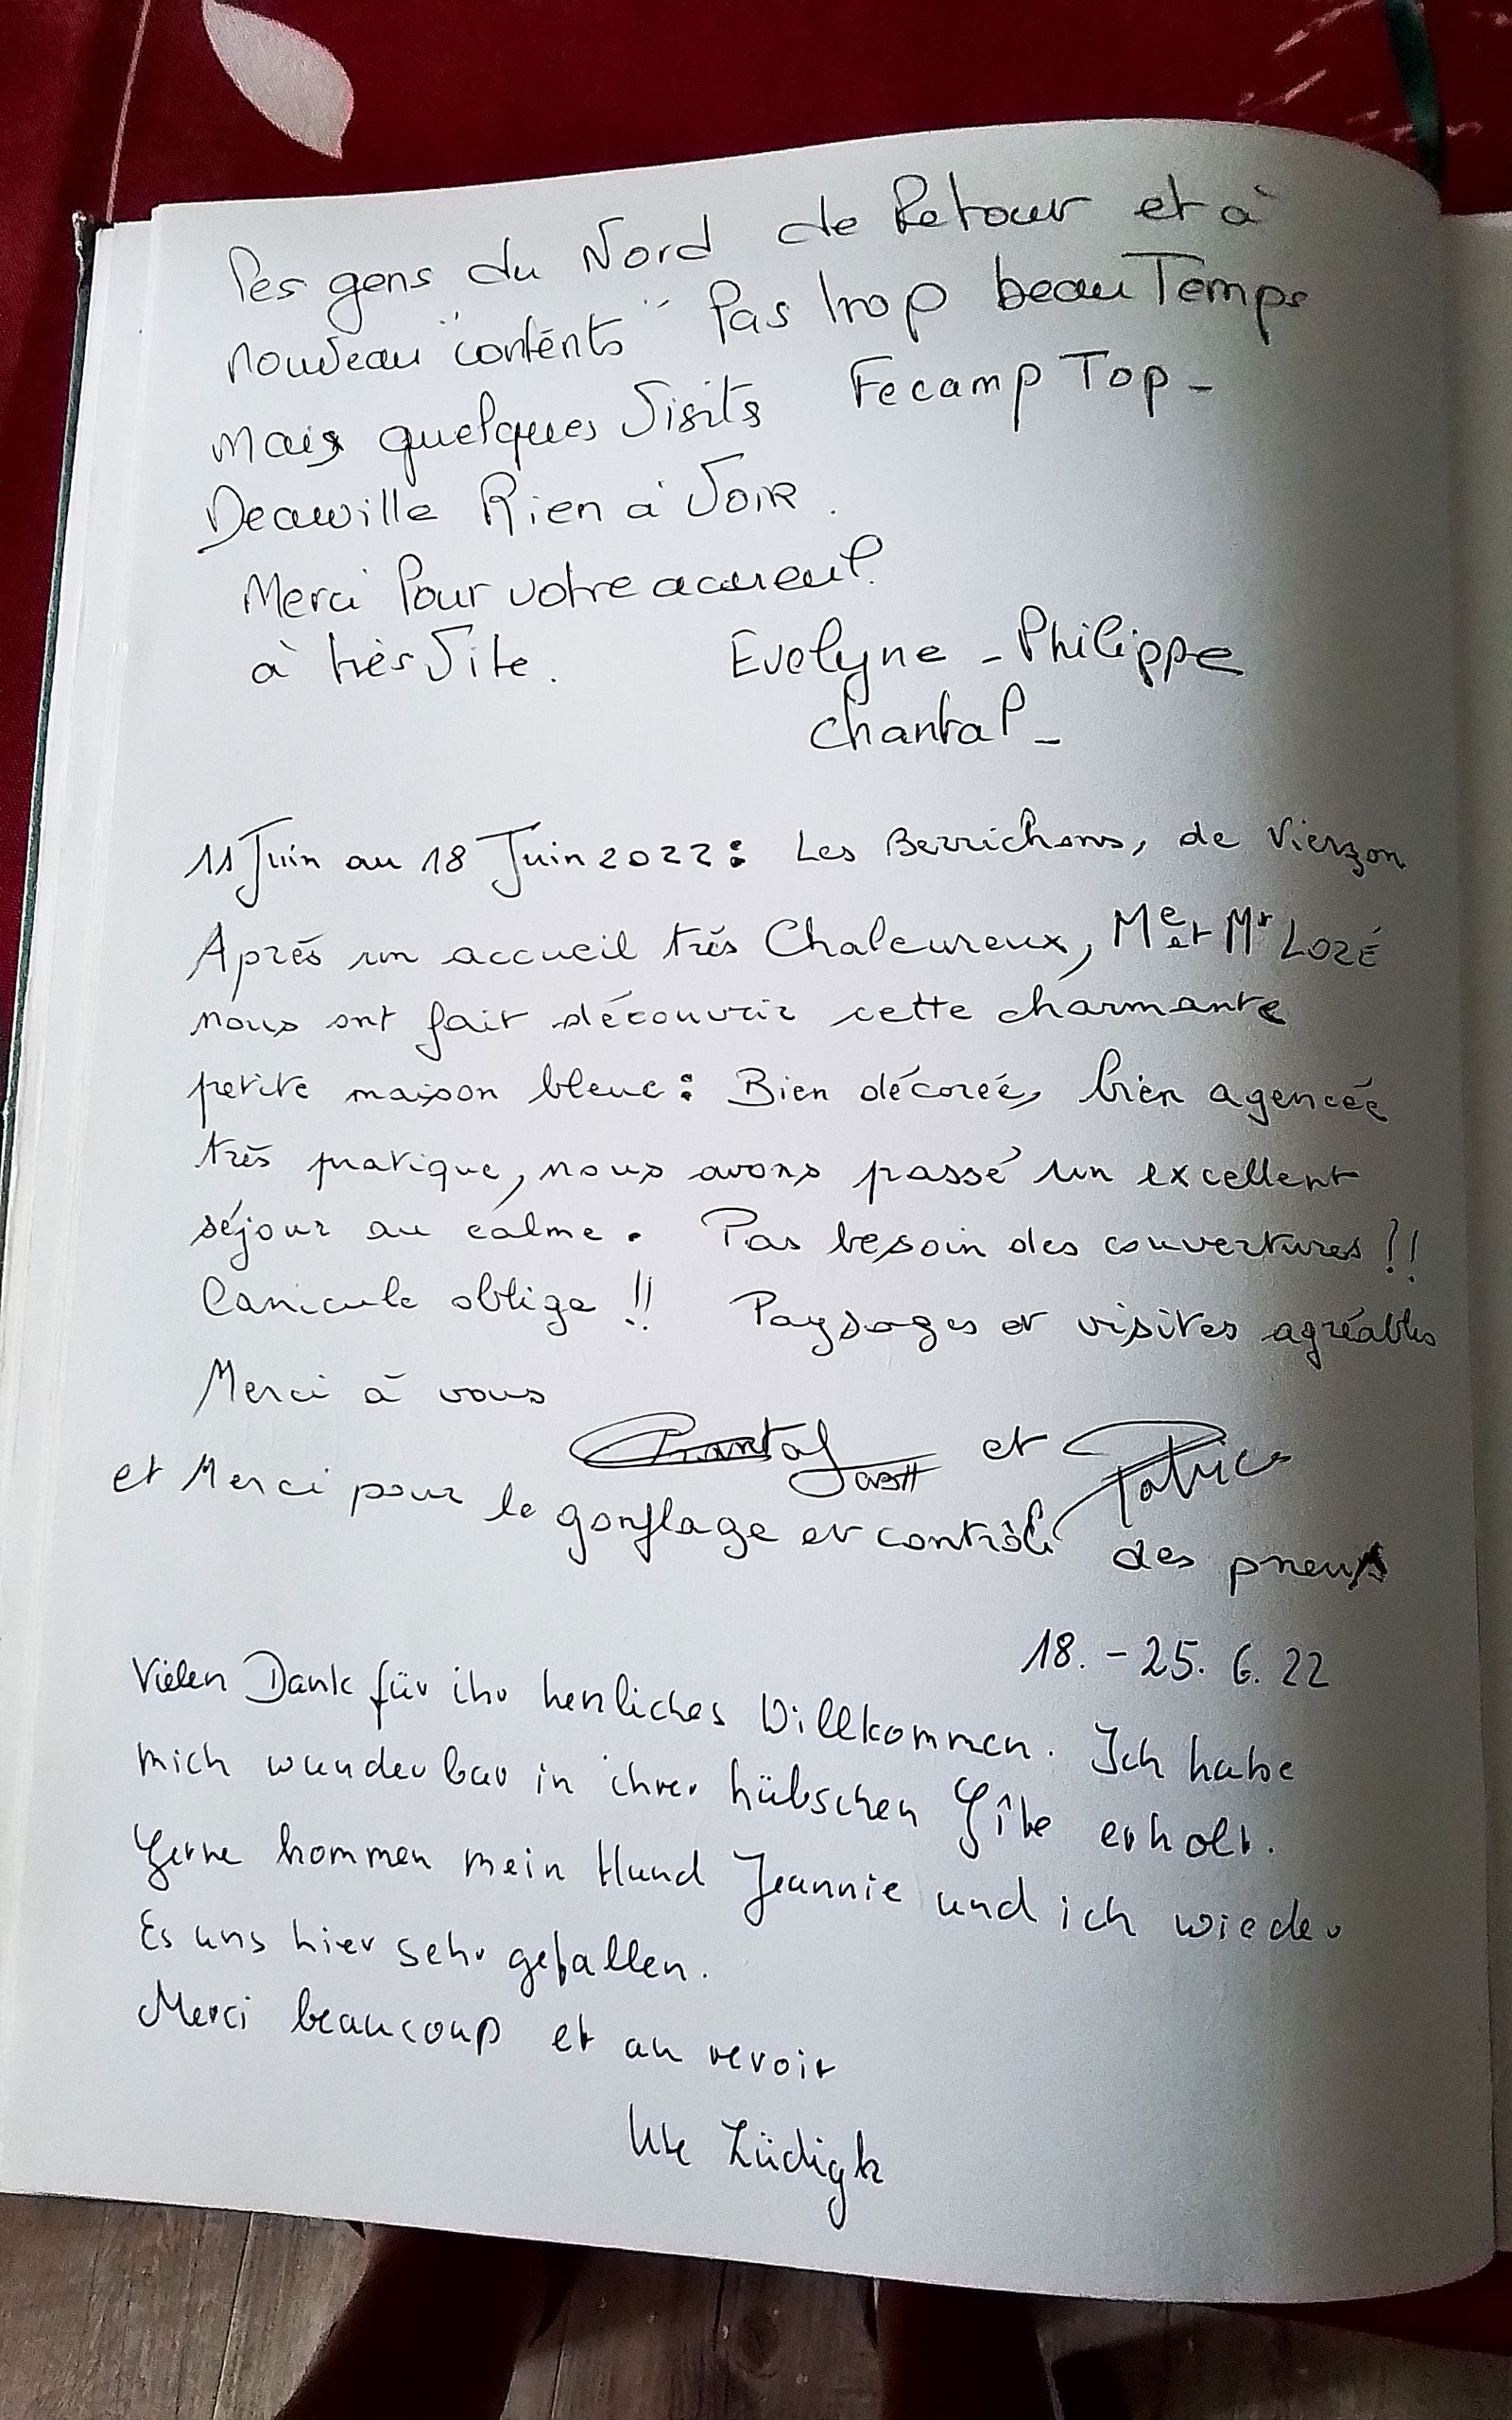 les gens du Nord de Retour et à
nouveau "contents" Pas trop beau Temps
mais quelques Visits Fecamp Top -
Deauville Rien à Voir.
Merci Pour votre accueil.
à très Vite. Evelyne - Philippe
Chantal -
11 Juin au 18 Juin 2022 : Les Berrichons, de Vierzon
Après un accueil très Chaleureux, Me et Mr LOZÉ
nous ont fait découvrir cette charmante
petite maison bleue : Bien décorée, bien agencée
très pratique, nous avons passé un excellent
séjour au calme. Pas besoin des couvertures !!
Canicule oblige !! Paysages et visites agréables
Merci à vous
Chantal et Patrice
et Merci pour le gonflage et contrôle des pneus
18. - 25. 6. 22
Vielen Dank für ihr herzliches Willkommen. Ich habe
mich wunderbar in ihrer hübschen Gîte erholt.
Gerne kommen mein Hund Jeannie und ich wieder
Es uns hier sehr gefallen.
Merci beaucoup et au revoir
Ute